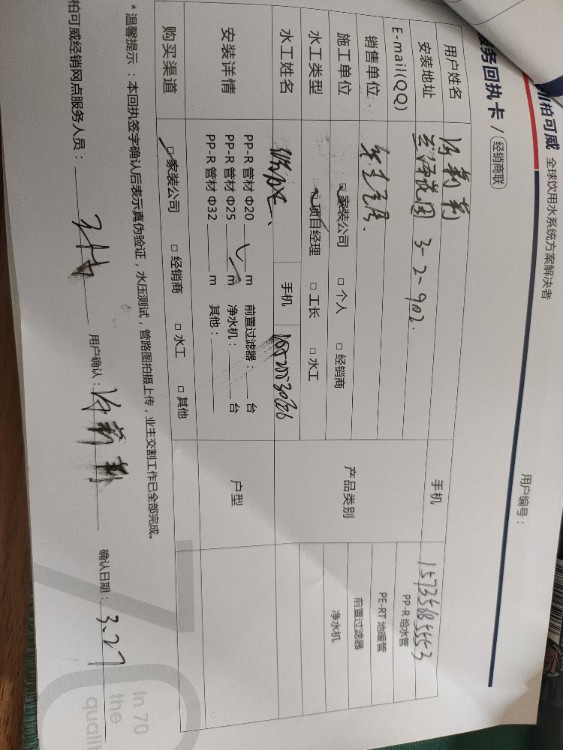 柏可威 全球饮用水系统方案解决者
务回执卡 / 经销商联
用户编号：
用户姓名
手机 15735685553
安装地址 3-2-902.
E-mail(QQ)
销售单位：
产品类别
PP-R 给水管
PE-RT 地暖管
前置过滤器
净水机
施工单位 家装公司 □ 个人 □ 经销商
水工类型 项目经理 □ 工长 □ 水工
水工姓名
手机
安装详情
PP-R 管材 Φ20 m 前置过滤器： 台
PP-R 管材 Φ25 m 净水机： 台
PP-R 管材 Φ32 m 其他：
户型
购买渠道 家装公司 □ 经销商 □ 水工 □ 其他
*温馨提示：本回执签字确认后表示真伪验证，水压测试，管路图拍摄上传，业主交割工作已全部完成。
柏可威经销网点服务人员：
用户确认：
确认日期：3.27
In 70
the
qualit